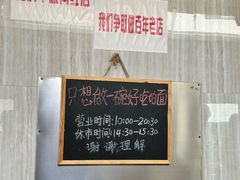 我们争取做百年老店
只想做一碗好吃的面
营业时间:10:00-20:30
休市时间:14:30-15:30
谢谢理解